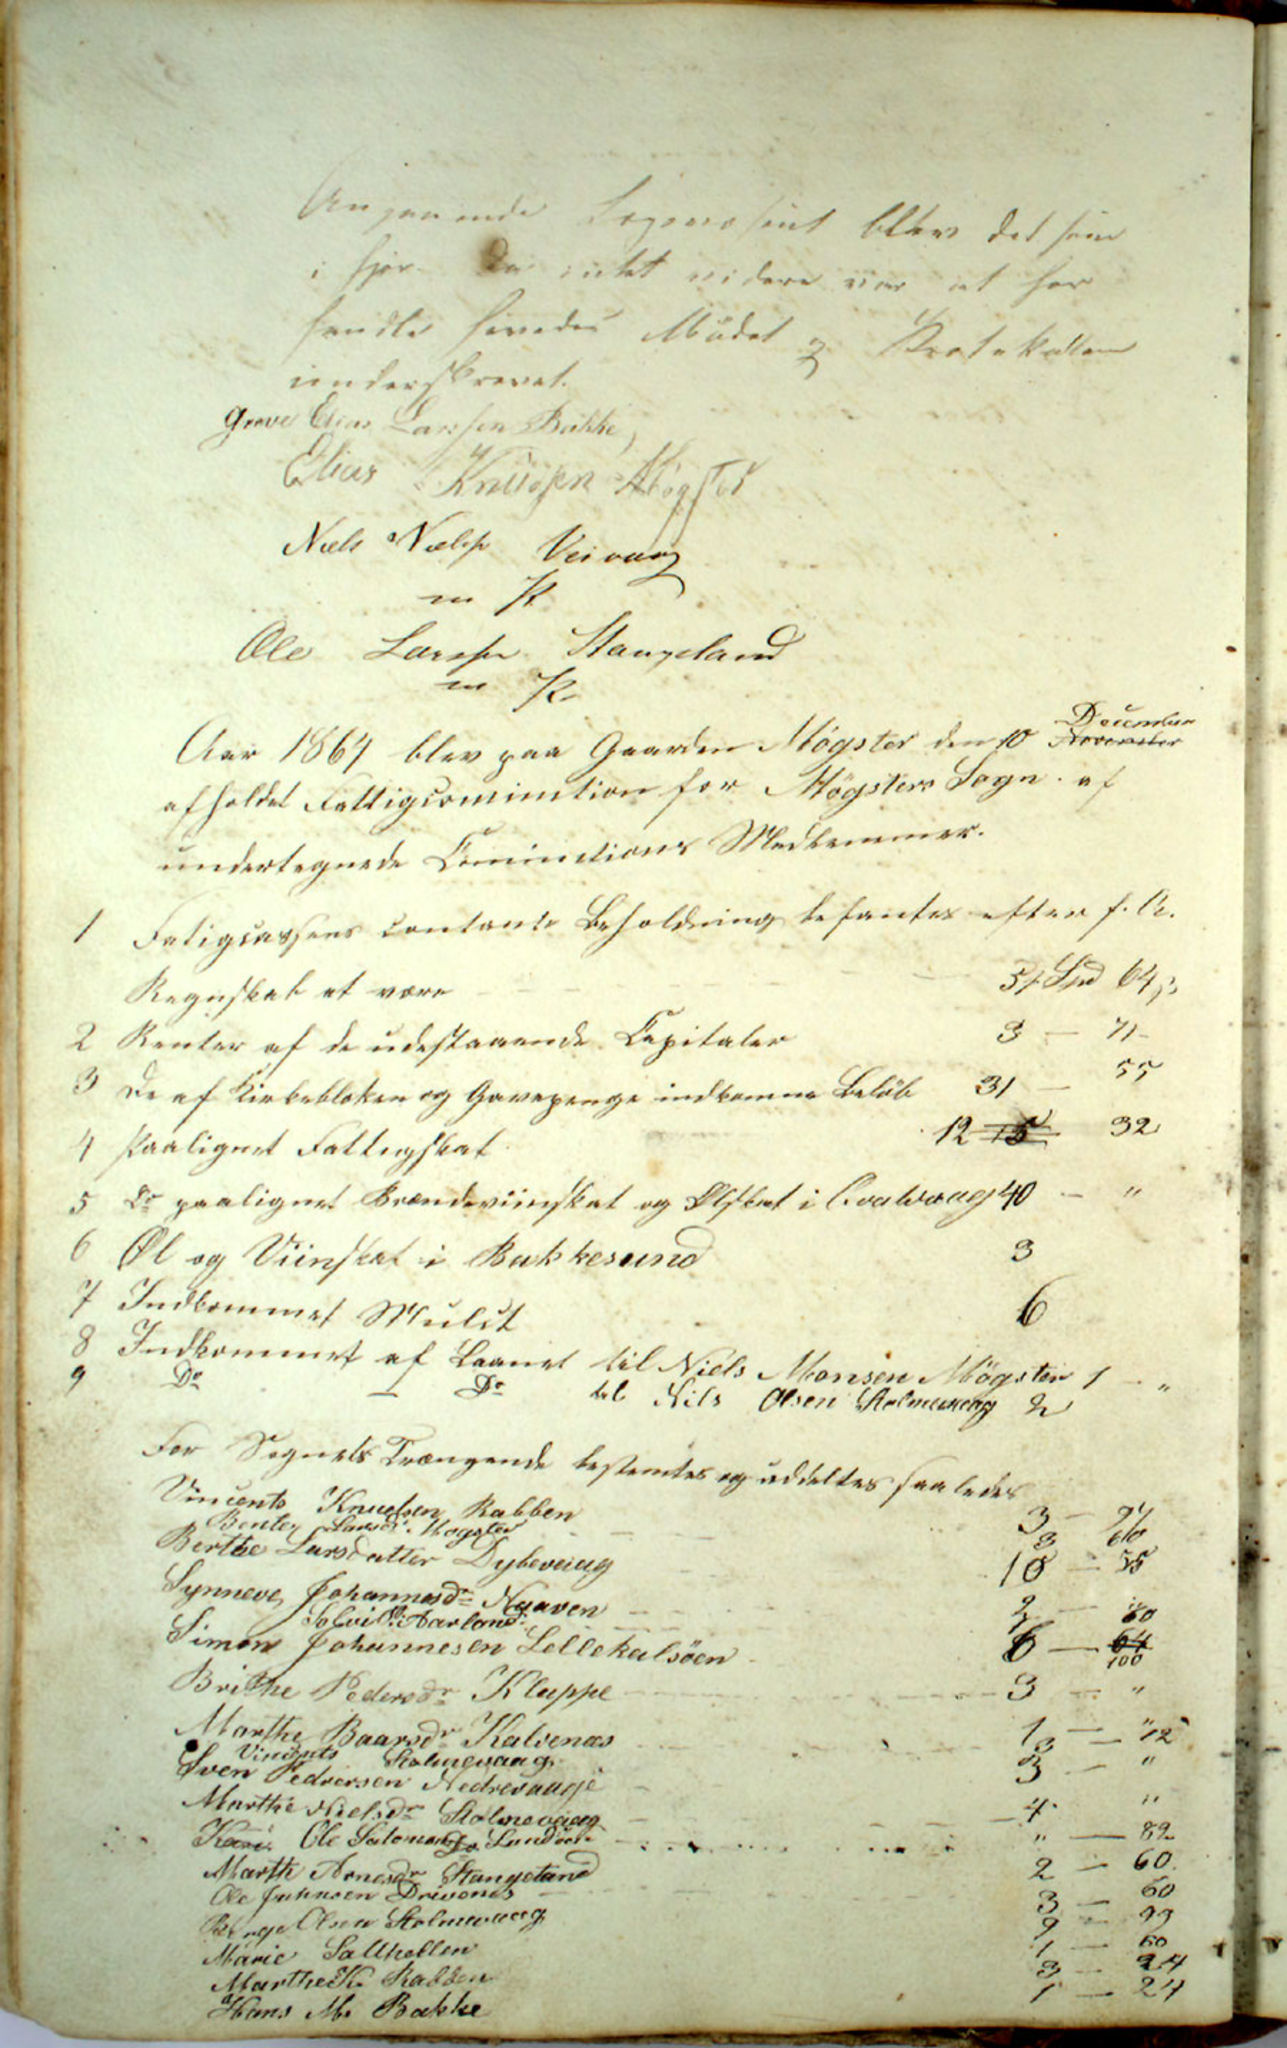 Angaaende Lægvæsenet blev det som
i fjor. Da intet videre var at for
handle hævedes Mødet og Protokollen
underskrevet.
Greve Elias Larssen Bakke,
Elias Knudsen Møgster
Niels Nielss Veivaag
m P
Ole Larssen Stangeland
m P
December
Aar 1864 blev paa Gaarden Møgster den 10 November
afholdet Fattigcommition for Møgsters Sogn af
undertegnede Commitions Medlemmer.
1 Fatigcassens contante Beholdning befantes efter f. A.
Regnskab at være 51 Spd 64 s
2 Renter af de udestaaende Capitaler 3 - 71 -
3 De af Kirkebloken og Gavepenge indkomne Beløb 31 - 55
4 Paalignet Fattigskat 12 15 32
5 Do paalignet Brændeviinskat og Ølskat i 40 - "
6 Øl og Viinskat i Bakkesund 3
7 Indkommet Mulct 6
8 Indkommet af Laanet til Niels Monsen Møgster 1 - "
9 Do - Do til Nils Olsen Stolmevaag 2
For Sognets Trængende bestemtes og uddeltes saaledes
Vincents Knudsen Rabben 3 - 94
Bente Larsdr. Møgster 3 60
Berthe Larsdatter Dybevaag 10 - 55
Synneve Johannesdr Neaven 2 - "
Solvi Aarland 60
Simon Johannesen Lellekalsøen 6 - 64 100
Brithe Pedersdr Kluppe 3 - "
Marthe Baarsdr Kalvenæs 1 - "
Vincents Stolmevaag 3 - 12
Sven Pedersen Nedrevaage 3 - "
Marthe Nielsdr Stolmevaag 4 "
Kari Ole Salomons Sundøen " - 82
Marthe Arnesdr Stangeland 2 - 60
Ole Johnsen Drivenes 3 - 60
Olsen Stolmevaag 9 - 99
Marie Salthellen 1 - 60
Marthe K. Rabben 3 - 24
Hans M. Bakke 1 - 24